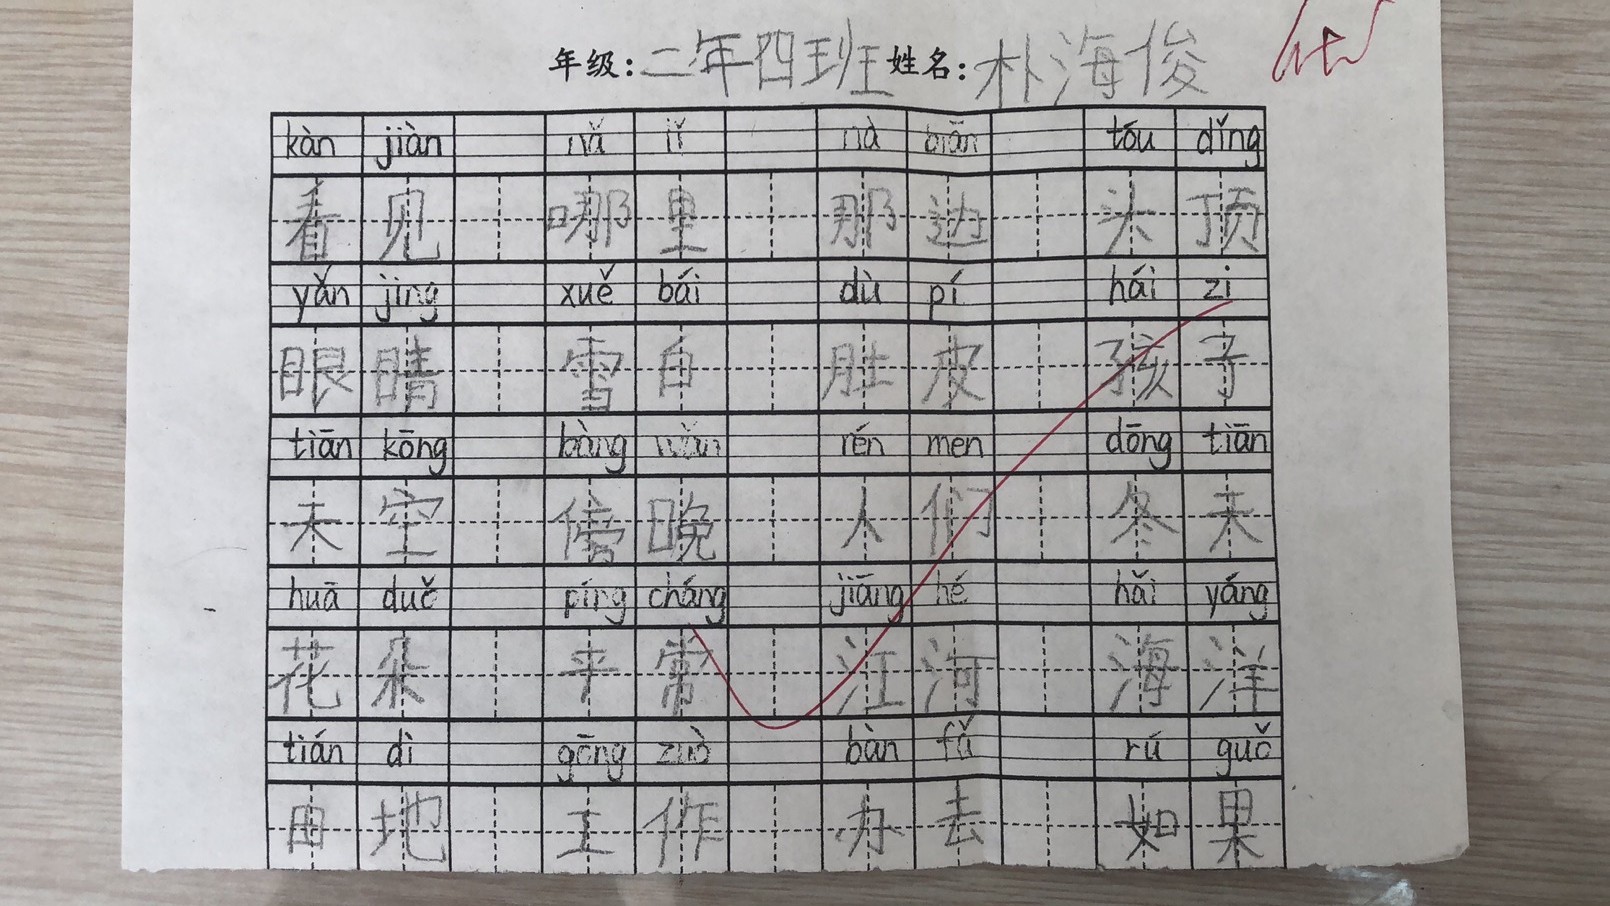 年级：二年四班 姓名：朴海俊
kàn jiàn nǎ lǐ nà biān tóu dǐng
看见 哪里 那边 头顶
yǎn jing xuě bái dù pí hái zi
眼睛 雪白 肚皮 孩子
tiān kōng bàng wǎn rén men dōng tiān
天空 傍晚 人们 冬天
huā duǒ píng cháng jiāng hé hǎi yáng
花朵 平常 江河 海洋
tián dì gōng zuò bàn fǎ rú guǒ
田地 工作 办法 如果